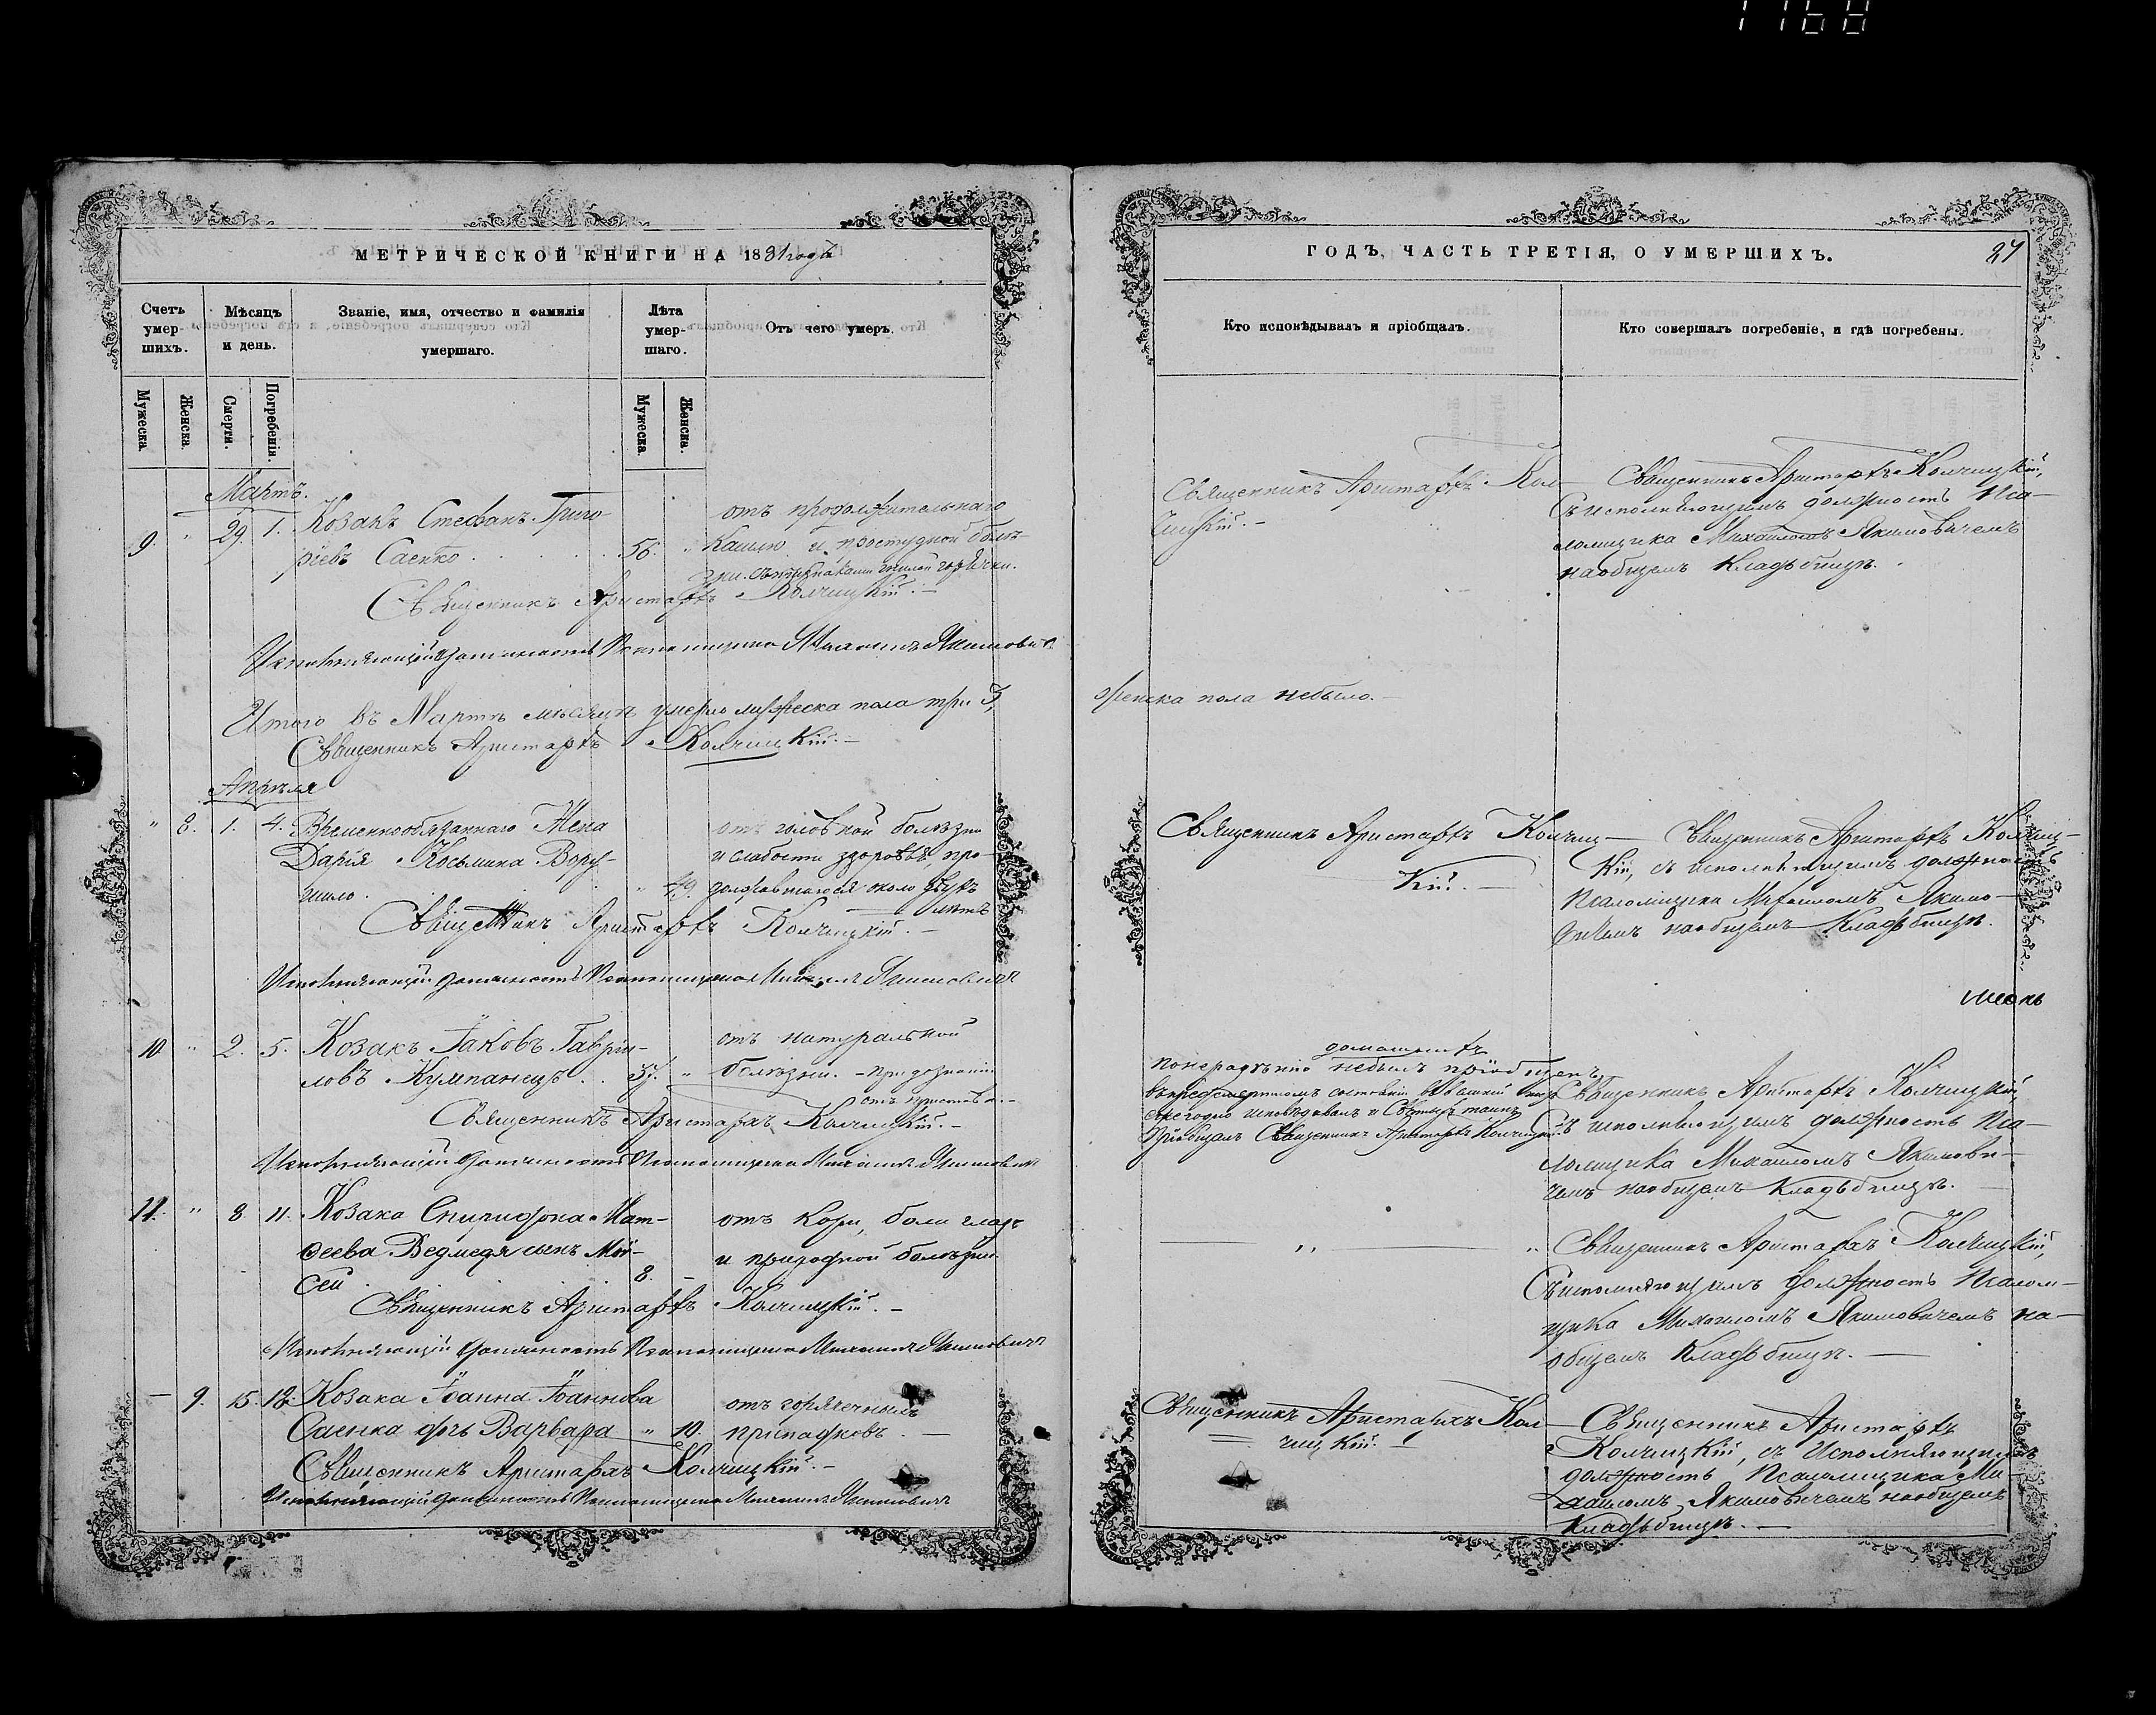 1168
МЕТРИЧЕСКОЙ КНИГИ НА 1881 годъ
Счетъ умершихъ.
Мѣсяцъ и день.
Званіе, имя, отчество и фамилія умершаго.
Лѣта умершаго.
Отъ чего умеръ.
Мужеска.
Женска.
Смерти.
Погребенія.
Мужеска.
Женска.
Мартъ.
9. " 29. 1. Козакъ Стефанъ Григо-
ріевъ Саенко . . . 56. "
отъ продолжительнаго
кашлю и простудной болѣ-
зни
Священникъ Аристархъ Колчицкій.
Исполняющій должность Псаломщика Михаилъ Якимовичъ
Итого въ Мартѣ мѣсяцѣ умерло мужеска пола три 3,
Священникъ Аристархъ Колчицкій.
Апрѣля
" 8. 1. 4. Временнообязаннаго Жена
Дарія Косьмина Вору-
шило. " 49.
отъ головной болѣзни
и слабости здоровья, про-
должавшагося около двухъ
лѣтъ
Священникъ Аристархъ Колчицкій.
Исполняющій должность Псаломщика Михаилъ Якимовичъ
10. " 2. 5. Козакъ Іаковъ Гаврiи-
ловъ Кумпанецъ . . 37. "
отъ натуральной
болѣзни.
Священникъ Аристархъ Колчицкій.
Исполняющій должность Псаломщика Михаилъ Якимовичъ
11. " 8. 11. Козака Спиридона Мат-
ѳеева Ведмедя сынъ Мой-
сей 8. –
отъ кори, боли
и природной болѣзни
Священникъ Аристархъ Колчицкій.
Исполняющій должность Псаломщика Михаилъ Якимовичъ
– 9. 15. 18. Козака Іоанна Іоаннова
Саенка дочь Варвара " 10.
отъ горячечныхъ
припадковъ.
Священникъ Аристархъ Колчицкій.
Исполняющій должность Псаломщика Михаилъ Якимовичъ
ГОДЪ, ЧАСТЬ ТРЕТІЯ, О УМЕРШИХЪ.
27
Кто исповѣдывалъ и пріобщалъ.
Кто совершалъ погребеніе, и гдѣ погребены.
Священникъ Аристархъ Кол-
чицкій.
Священникъ Аристархъ Колчицкій,
съ исполняющимъ должность Пса-
ломщика Михаиломъ Якимовичемъ
на общемъ кладбищѣ.
женска пола небыло.
Священникъ Аристархъ Колчиц-
кій.
Священникъ Аристархъ Колчиц-
кій, съ исполняющимъ должность
Псаломщика Михаиломъ Якимо-
вичемъ на общемъ кладбищѣ.
домашнихъ
По нерадѣнію небылъ пріобщенъ
исповѣдывалъ и Святыхъ таинъ
пріобщалъ Священникъ Аристархъ Колчицкій.
Священникъ Аристархъ Колчицкій,
съ исполняющимъ должность Пса-
ломщика Михаиломъ Якимови-
чемъ на общемъ кладбищѣ.
"
Священникъ Аристархъ Колчицкій,
съ исполняющимъ должность Псалом-
щика Михаиломъ Якимовичемъ на
общемъ кладбищѣ.
Священникъ Аристархъ Кол-
чицкій.
Священникъ Аристархъ
Колчицкій, съ исполняющимъ
должность Псаломщика Ми-
хаиломъ Якимовичемъ на общемъ
кладбищѣ.